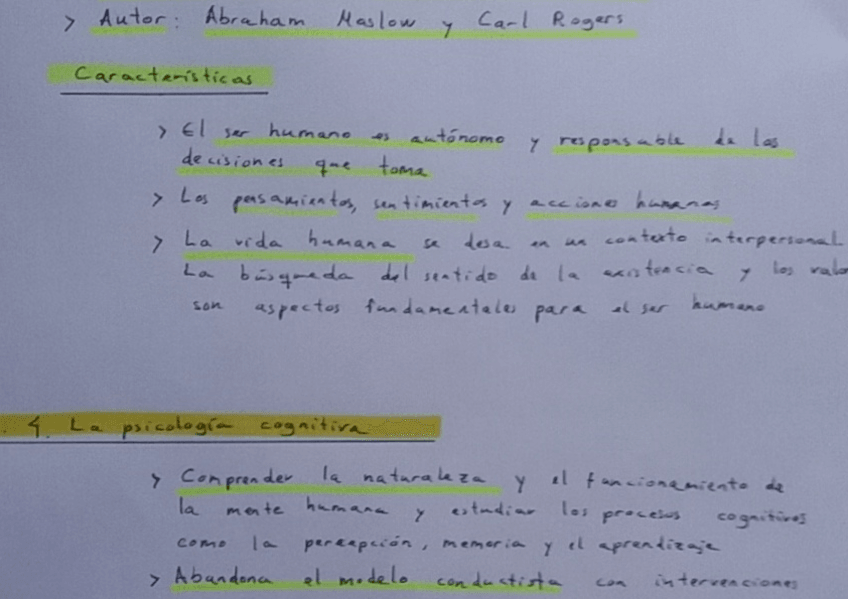 > Autor: Abraham Maslow y Carl Rogers
Características
> El ser humano es autónomo y responsable de las
decisiones que toma
> Los pensamientos, sentimientos y acciones humanas
> La vida humana se desa en un contexto interpersonal
La búsqueda del sentido de la existencia y los valo
son aspectos fundamentales para el ser humano
4. La psicología cognitiva
> Comprender la naturaleza y el funcionamiento de
la mente humana y estudiar los procesos cognitivos
como la percepción, memoria y el aprendizaje
> Abandona el modelo conductista con intervenciones